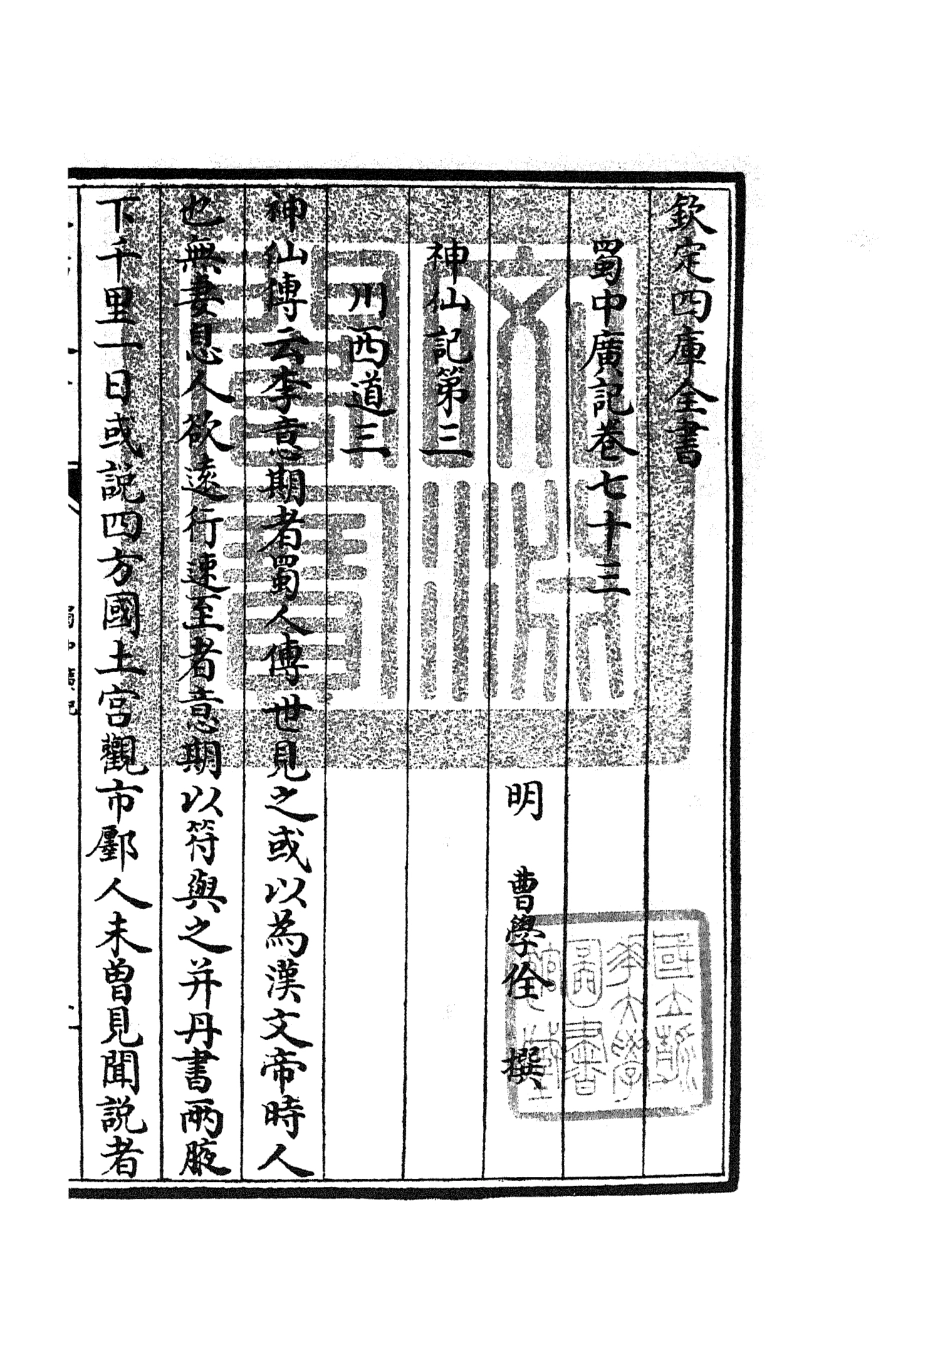 欽定四庫全書
蜀中廣記卷七十三
明　曹學佺　撰
神仙記第三
川西道三
神仙傳云李意期者蜀人傳世見之或以為漢文帝時人
也無妻息人欲遠行速至者意期以符與之并丹書兩腋
下千里一日或說四方國土宮觀市鄽人未曾見聞說者